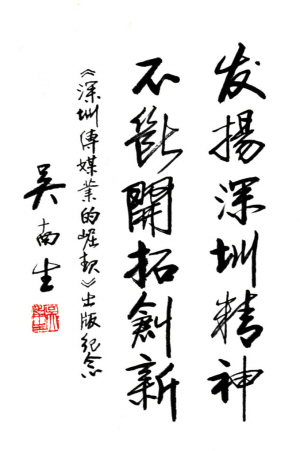 发揚深圳精神
不斷開拓創新
《深圳傳媒業的崛起》出版紀念
吴南生